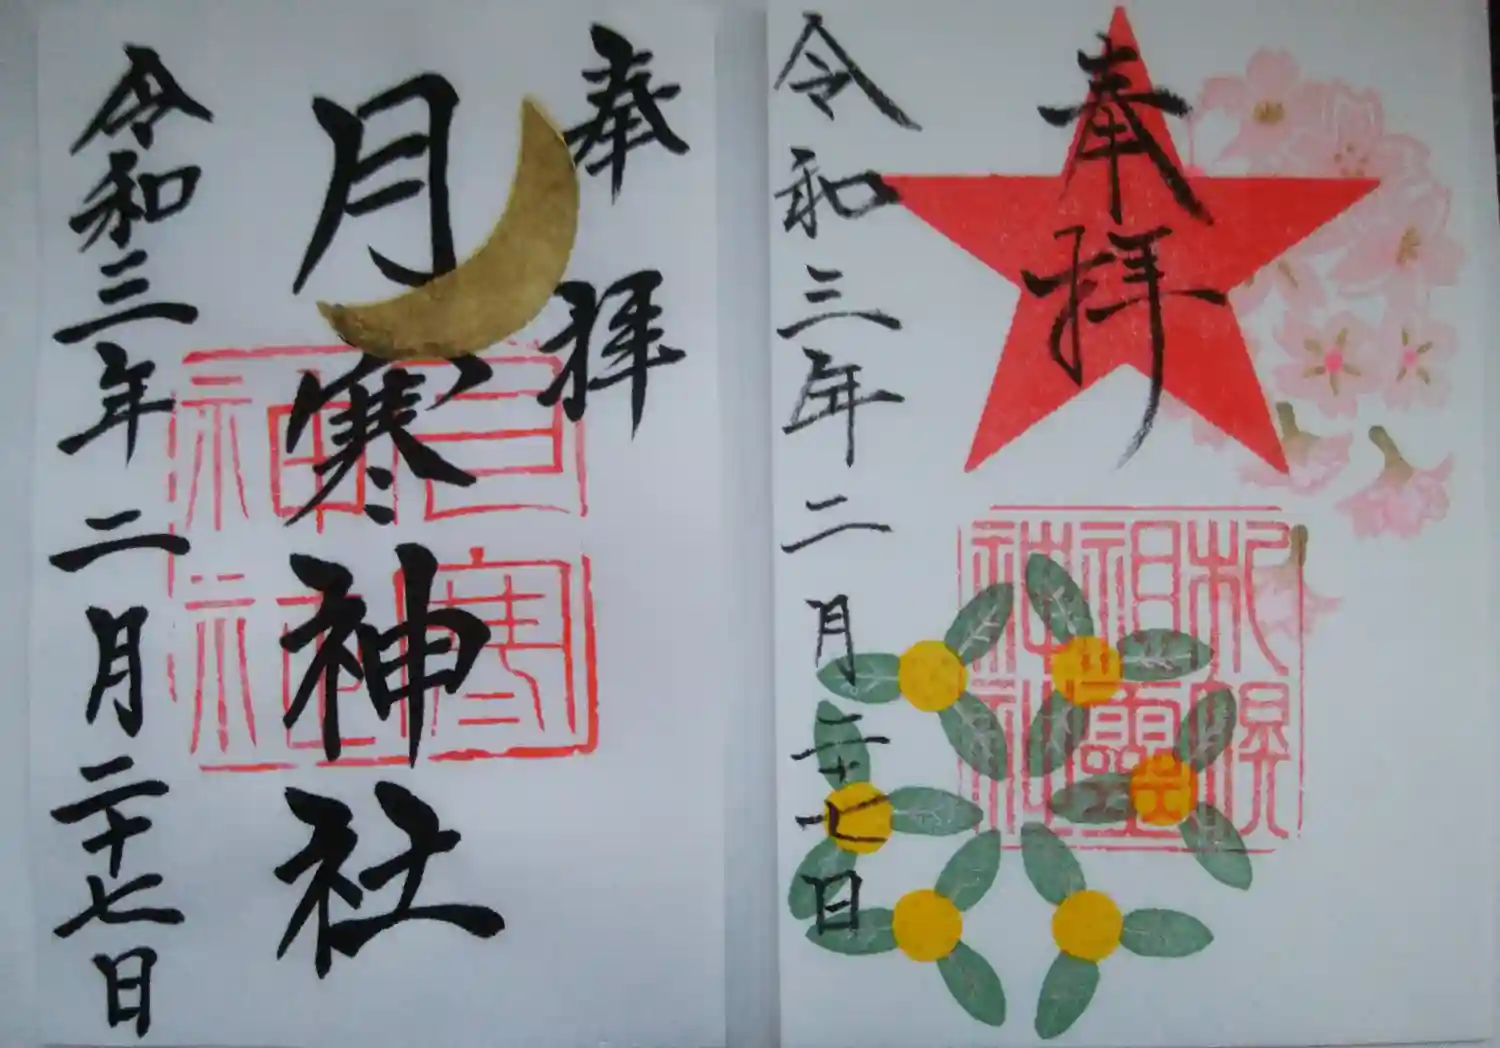 奉拝
月寒神社
月寒神社
令和三年二月二十七日
奉拝
札幌祖霊神社
令和三年二月二十七日